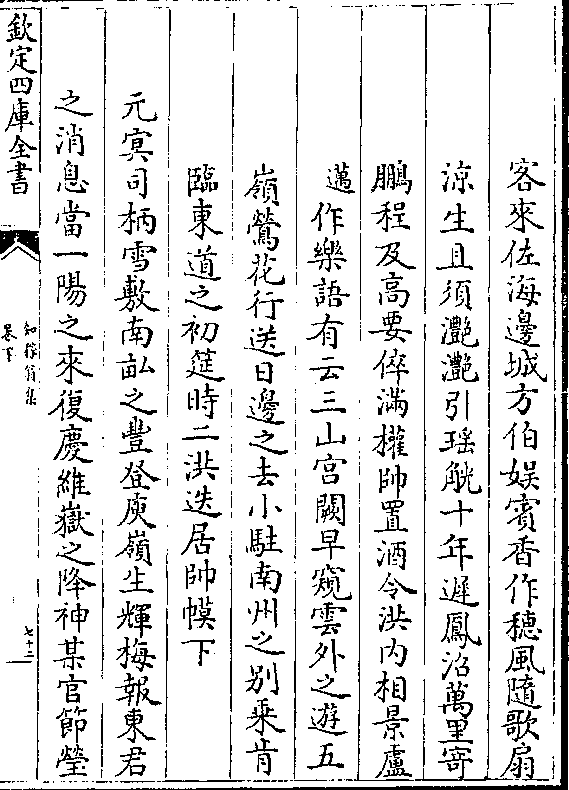 客來佐海邊城方伯娱賓香作穗風隨歌扇
涼生且須灧灧引瑶觥十年遲鳳沼萬里寄
鵬程及高要倅滿權帥置酒令洪内相景盧
邁作樂語有云三山宫闕早窺雲外之遊五
嶺鶯花行送日邊之去小駐南州之别乘肯
臨東道之初筵時二洪迭居帥幙下
元冥司柄雪敷南畝之豐登庾嶺生輝梅報東君
之消息當一陽之來復慶維嶽之降神某官節瑩
欽定四庫全書
知稼翁集
卷下
七十二